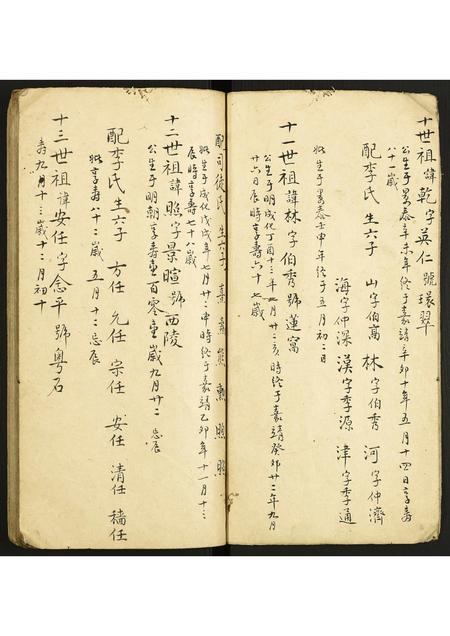 十世祖諱乾字英仁號璟翠
公生于景泰辛未年终于嘉靖辛卯十年五月十四日享壽
八十歲
配李氏生六子 山字伯高 林字伯秀 河字仲濟
海字仲深 漢字季源 津字季通
妣生于景泰壬申年终于五月初二日
十一世祖諱林字伯秀號蓮窩
公生于明成化丁酉十三年 月廿二亥時终于嘉靖癸卯廿二年九月
廿六日辰時享壽六十七歲
配司徒氏生六子 熊 勲 照
妣生于成化戊戌年七月廿二申時终于嘉靖乙卯年十一月十三
辰時享壽七十八歲
十二世祖諱照字景暄號西陵
公生于明朝享壽壹百零壹歲九月廿二忌辰
配李氏生六子 方任 允任 宗任 安任 清任 穡任
妣享壽八十二歲五月十二忌辰
十三世祖諱安任字念平號粤石
壽九月十三歲十二月初十